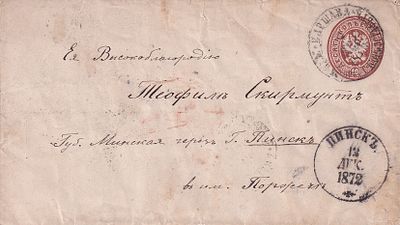 ВАРШАВА
Ея Високоблагородію
Теофилъ Скирмунтъ
Губ. Минская черезъ Г. Пинскъ
въ им. Поречи
ПИНСКЪ.
12
ДЕК.
1872